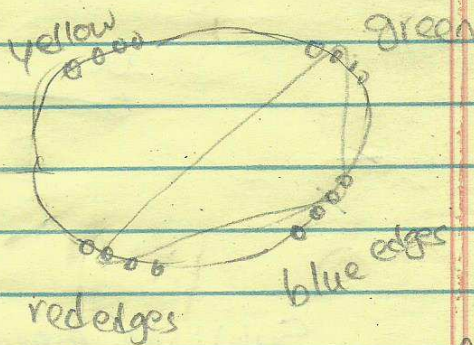 yellow
green
blue edges
red edges